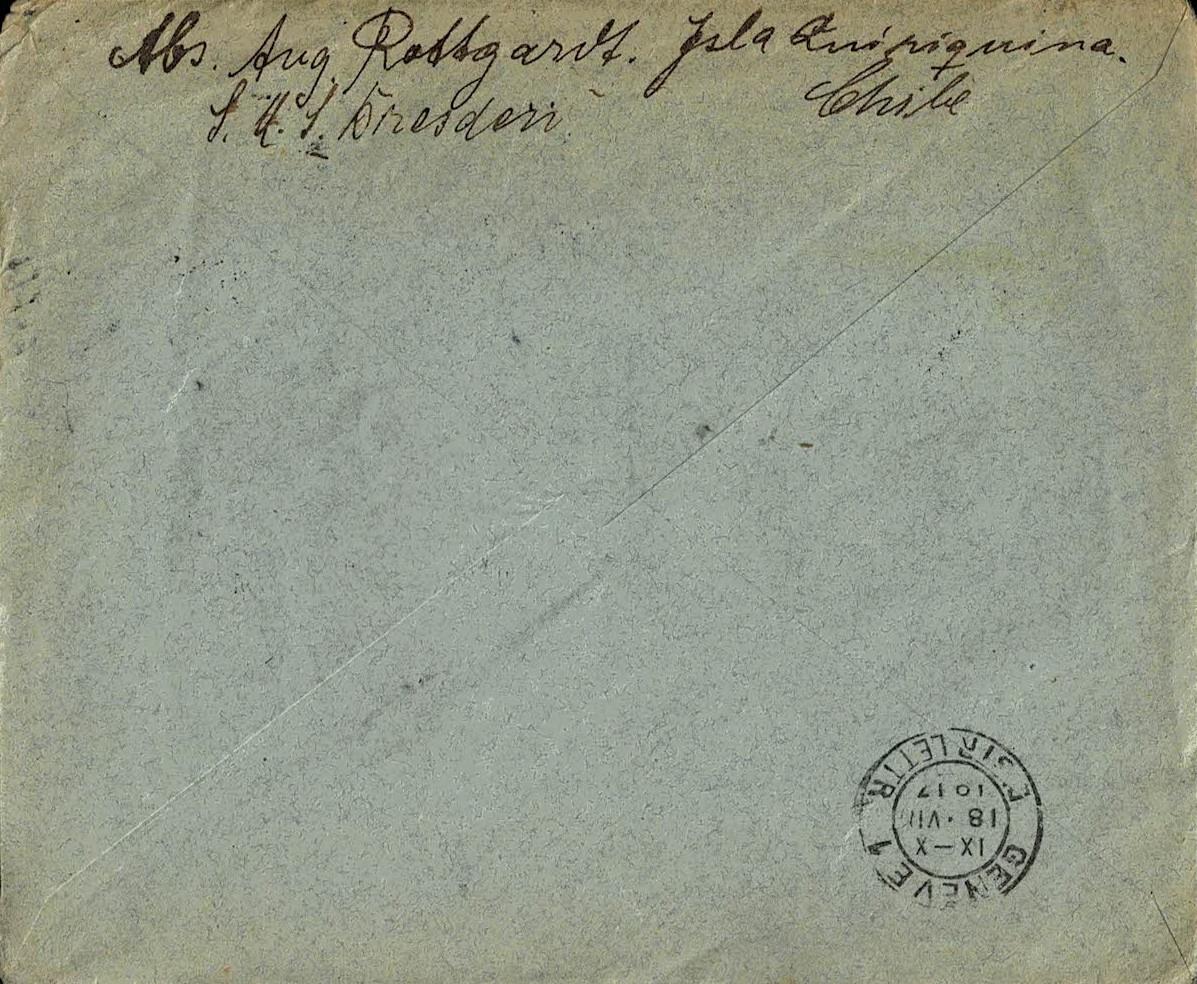 Abs. Aug. Rottgardt. Isla Quiriquina.
S. M. S. Dresden
Chile
GENÈVE 1
IX—X
18 · VII
1917